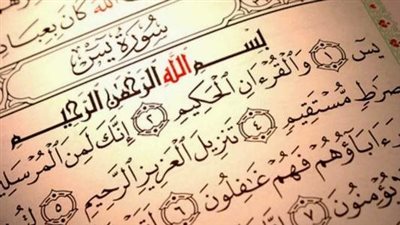 ٱللَّهَ كَانَ بِعِبَا
سُورَةُ يسٓ
بِسْمِ ٱللَّهِ ٱلرَّحْمَٰنِ ٱلرَّحِيمِ
يسٓ ١ وَٱلْقُرْءَانِ ٱلْحَكِيمِ ٢ إِنَّكَ لَمِنَ ٱلْمُرْسَلِي
صِرَٰطٍ مُّسْتَقِيمٍ ٤ تَنزِيلَ ٱلْعَزِيزِ ٱلرَّحِيمِ ٥ لِتُ
رَ ءَابَآؤُهُمْ فَهُمْ غَٰفِلُونَ ٦
يُؤْمِنُونَ ٧